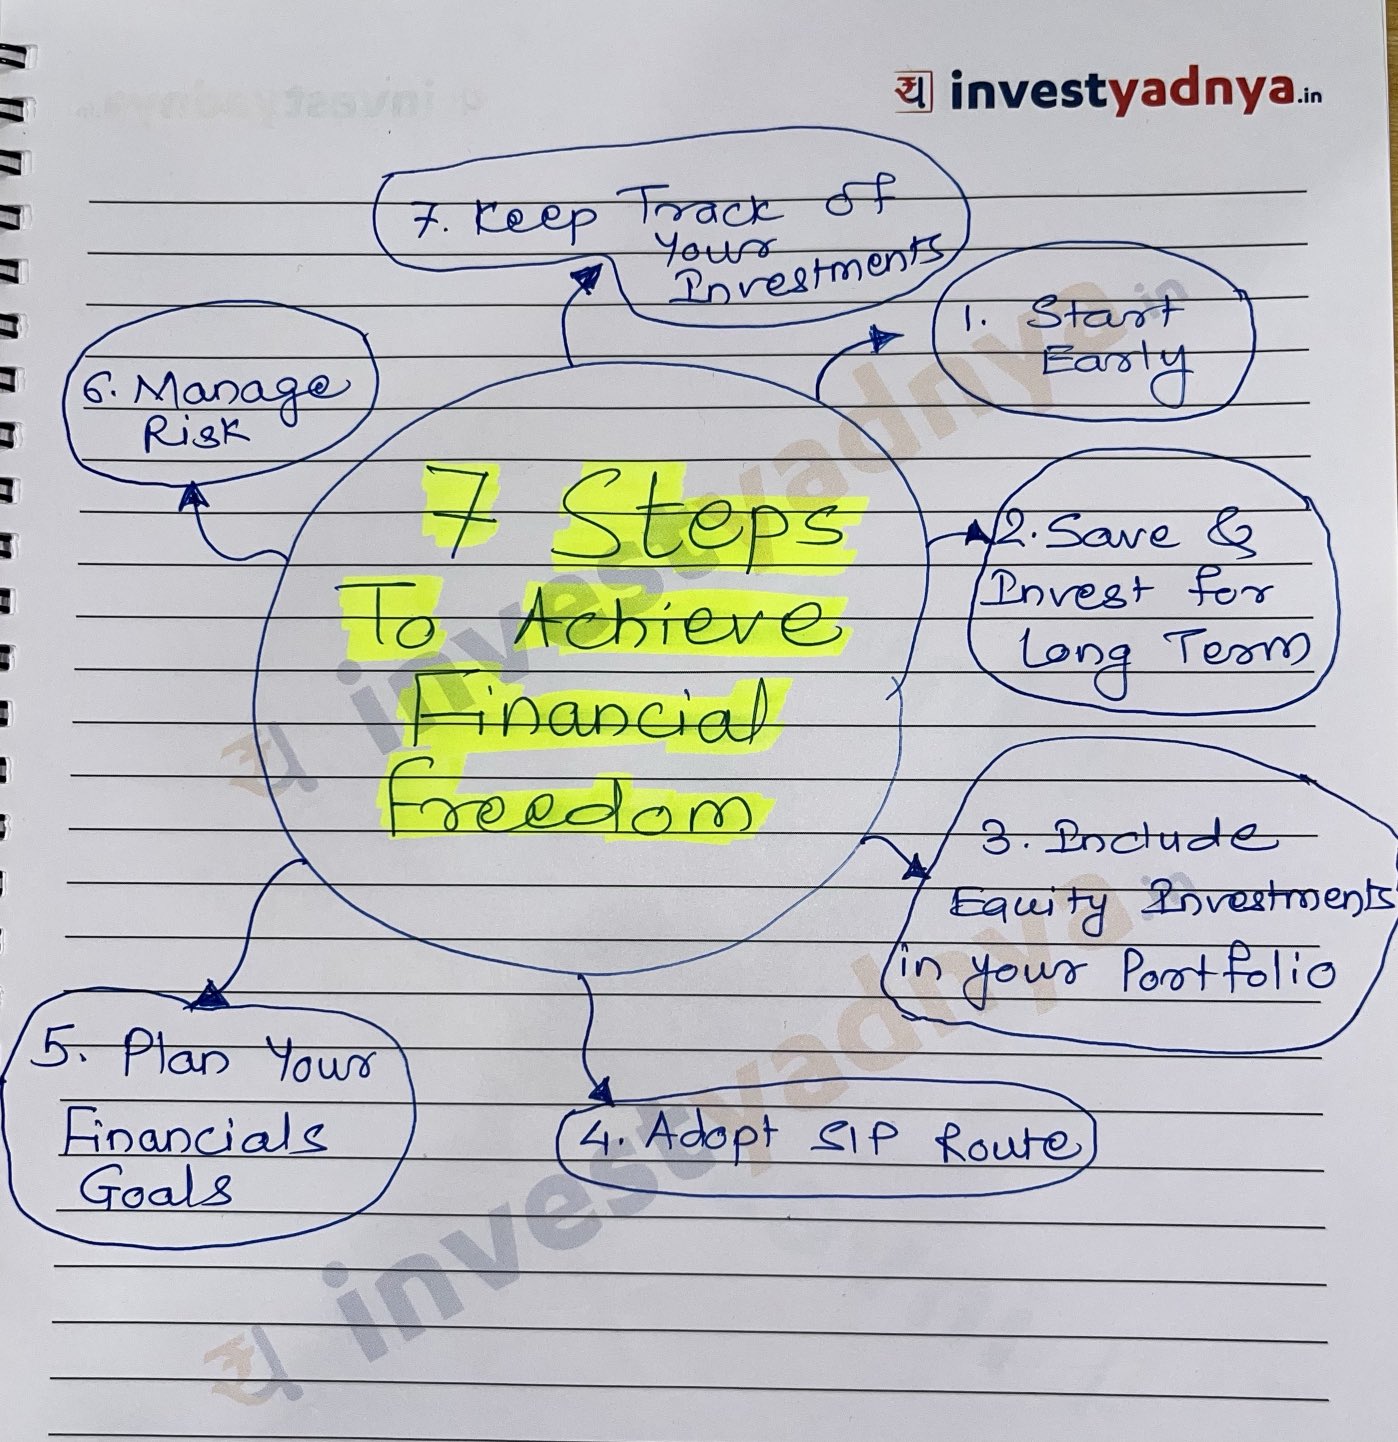 य investyadnya.in
7 Steps
To Achieve
Financial
Freedom
1. Start
Early
2. Save &
Invest for
Long Term
3. Include
Equity Investments
in your Portfolio
4. Adopt SIP Route
5. Plan Your
Financials
Goals
6. Manage
Risk
7. Keep Track of
Your
Investments
य investyadnya.in
य investyadnya.in